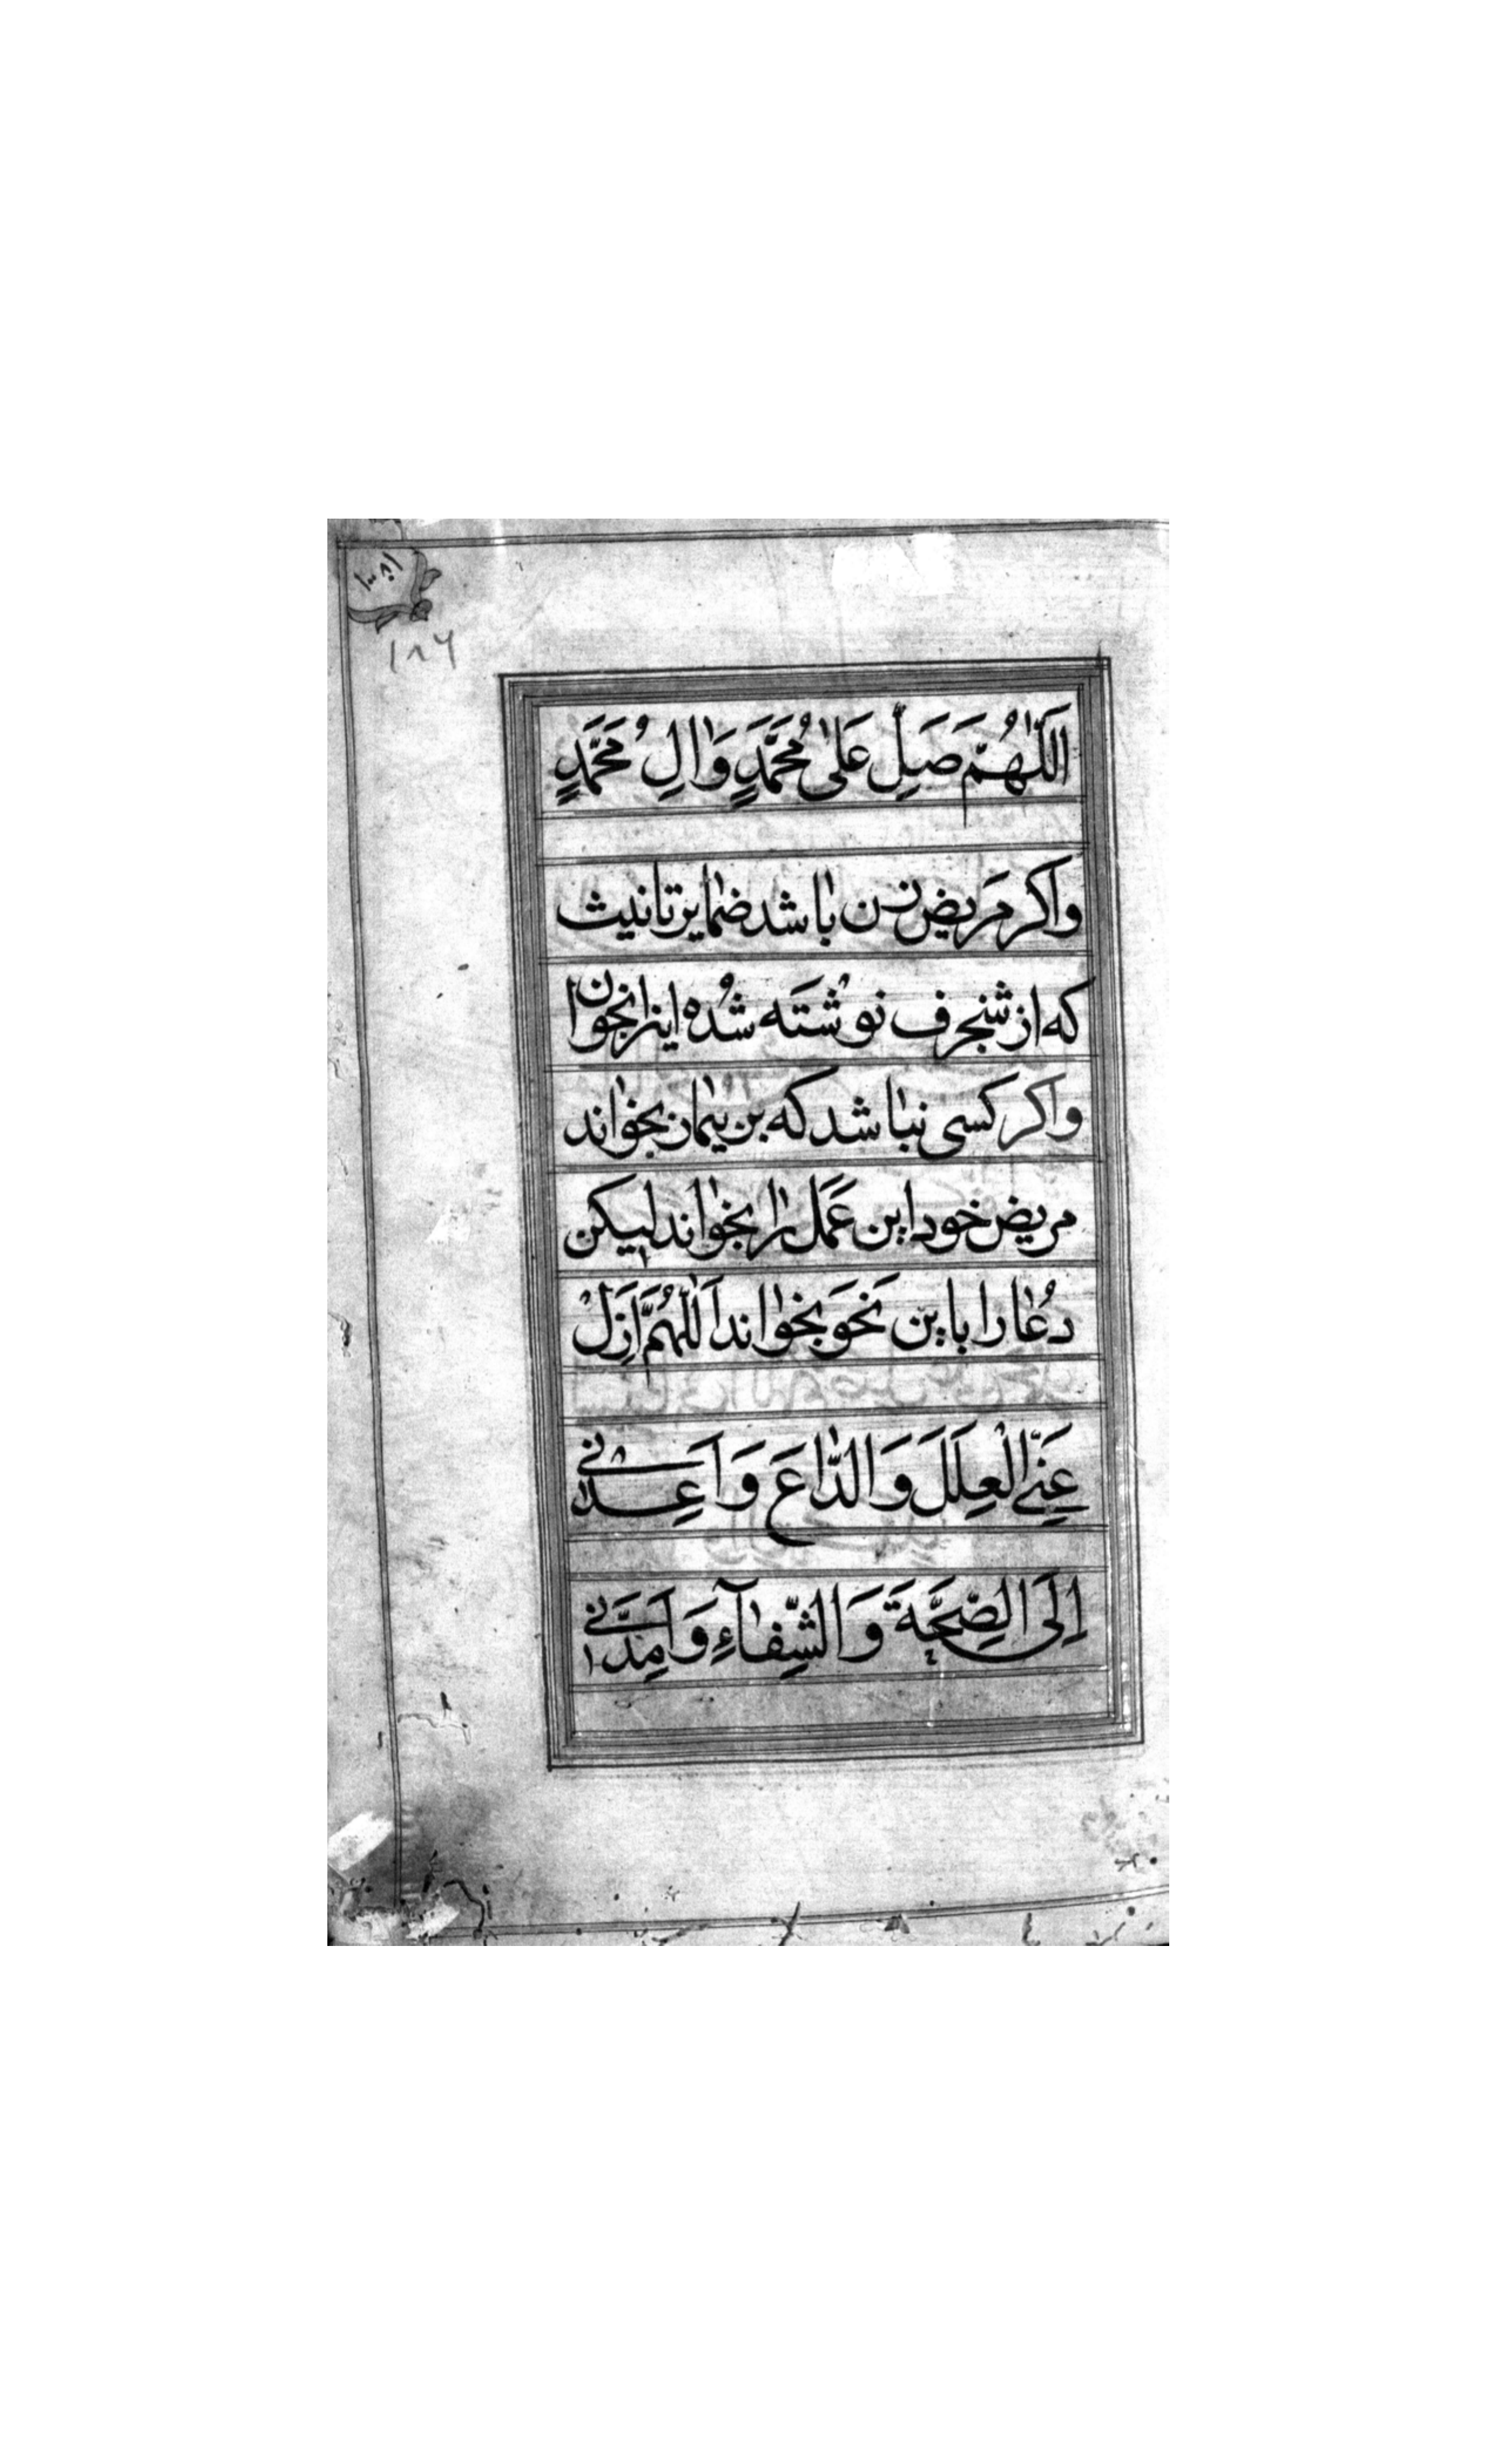 ۱۸۶
اَللّٰهُمَّ صَلِّ عَلٰى مُحَمَّدٍ وَاٰلِ مُحَمَّدٍ
واكر مَريض زن باشد ضماير تانيث
كه از شنجرف نوشتَه شُده اينرا بخوان
واكر كسى نباشد كه بزبان بخواند
مريض خود اين عَمَل را بخواند ليكن
دُعا را باين نَحَو بخواند اَللّٰهُمَّ اَزِلْ
عَنِّى الْعِلَلَ وَالدّٰاءَ وَاَعِدْنى
اِلَى الصِّحَّةِ وَالشِّفٰآءِ وَاَمِدَّنى